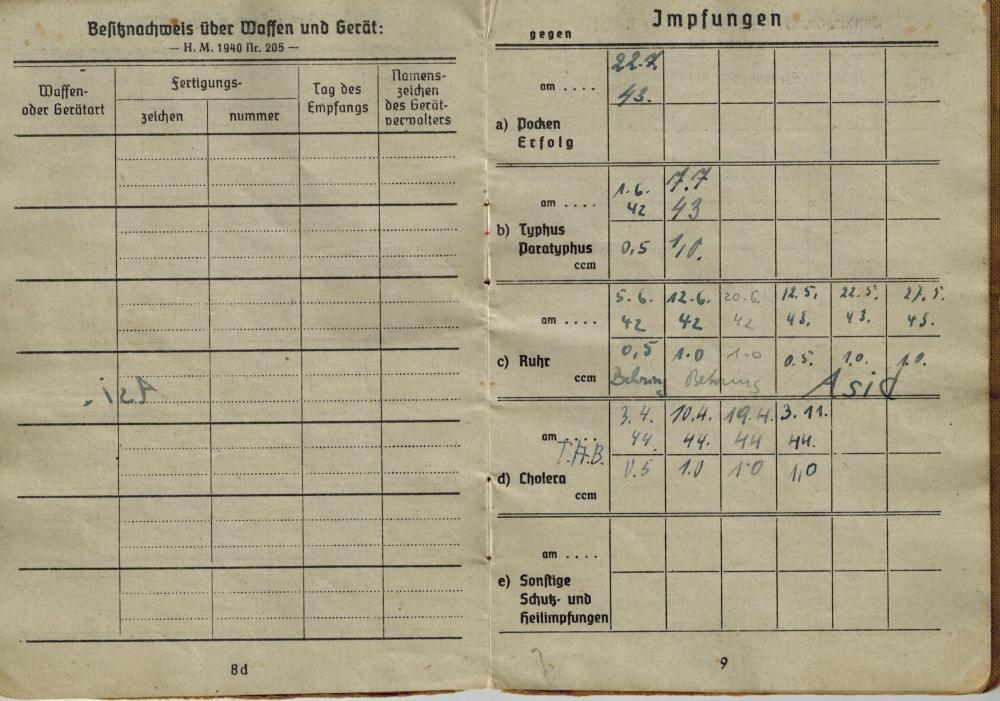 Besitznachweis über Waffen und Gerät:
— H. M. 1940 Nr. 205 —
Waffen- oder Gerätart
Fertigungs-
zeichen
nummer
Tag des Empfangs
Namens-
zeichen
des Gerät-
verwalters
8d
Impfungen
gegen
am . . . .
22.7. 43.
a) Pocken
Erfolg
am . . . .
1.6. 42
7.7 43
b) Typhus
Paratyphus
ccm
0,5
1,0.
am . . . .
5.6. 42
12.6. 42
20.6. 42
12.5. 43.
22.5. 43.
27.5. 43.
c) Ruhr
ccm
0,5
1.0
1.0
0.5.
1.0.
1.0.
Behring
Behring
Asid
am . . . .
3.4. 44.
10.4. 44.
19.4. 44
3.11. 44.
T.A.B.
d) Cholera
ccm
0.5
1.0
1.0
1,0
am . . . .
e) Sonstige
Schutz- und
Heilimpfungen
9